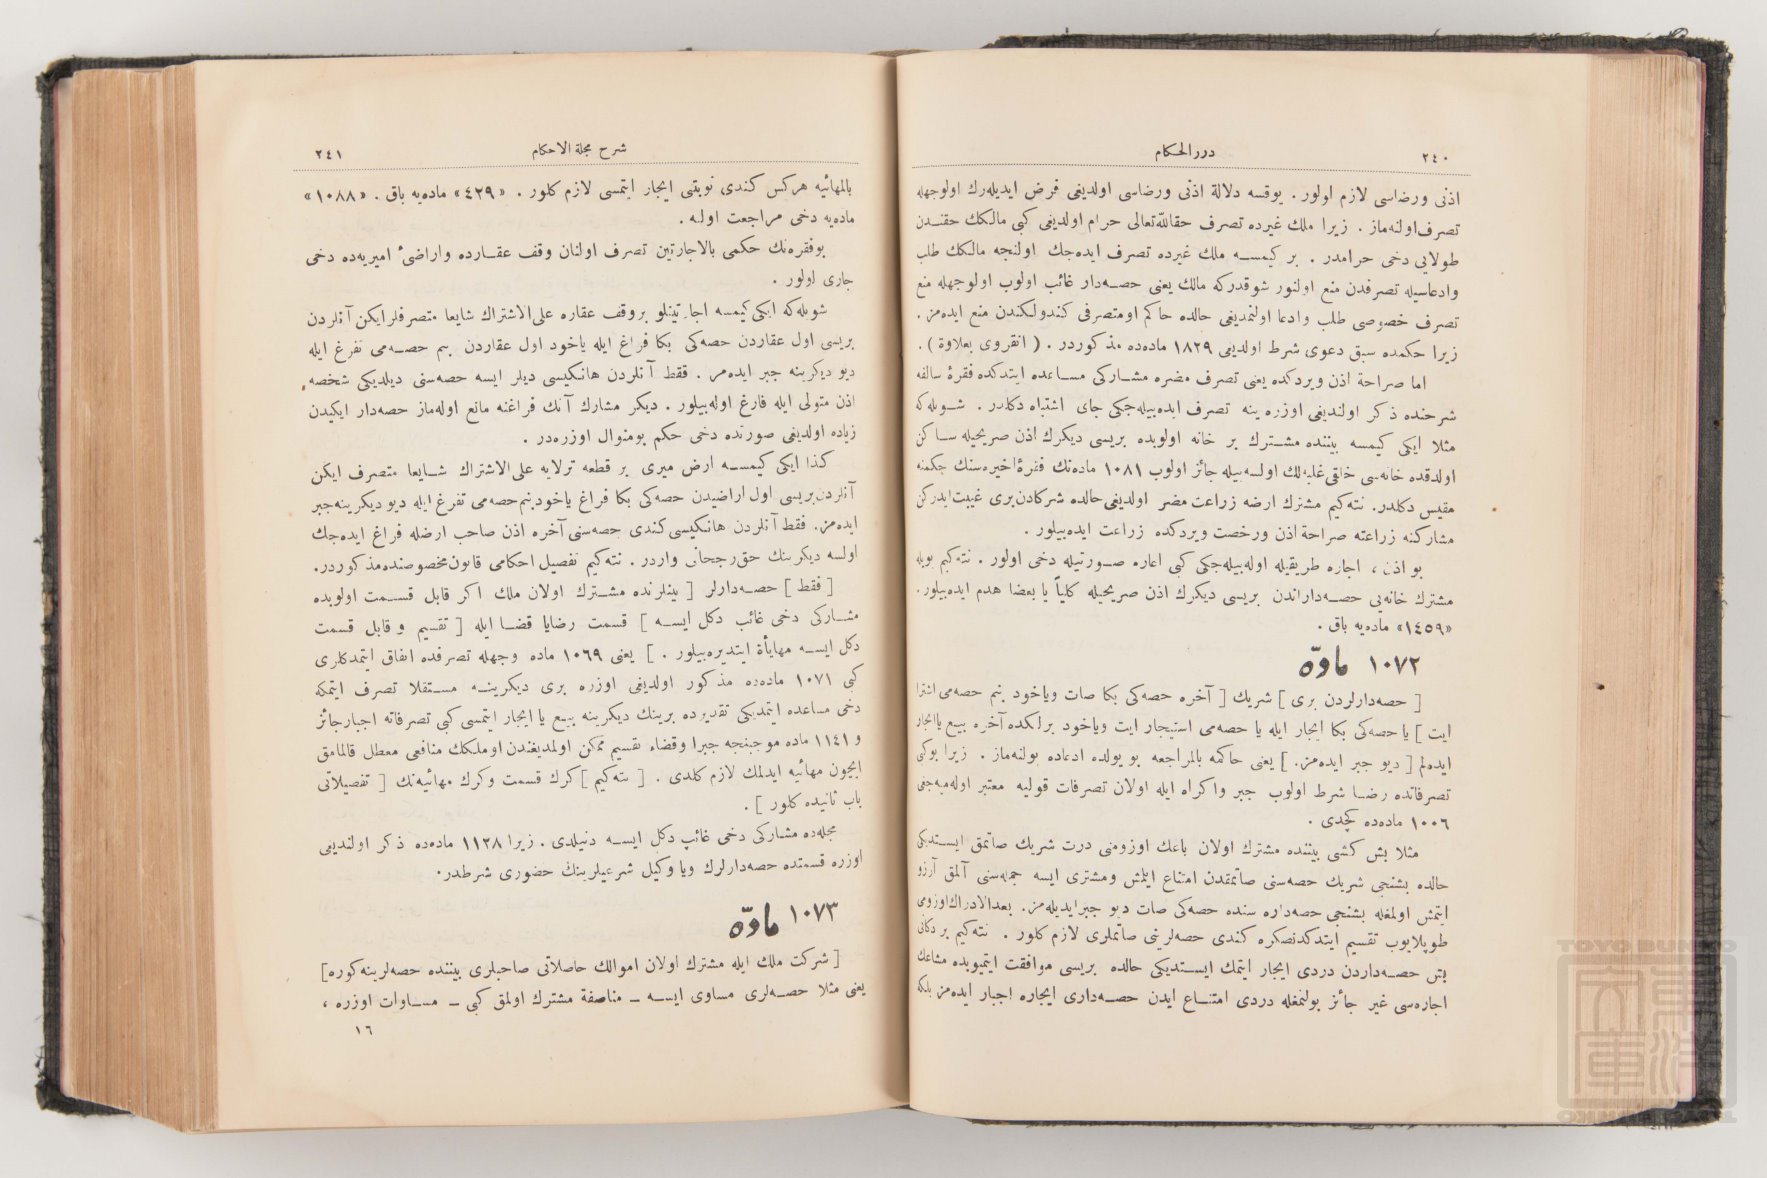 ٢٤٠
دررالحكام
اذنی ورضاسی لازم اولور . یوقسه دلالة اذنی ورضاسی اولدیغی فرض ایدیله‌رك اولوجهله
تصرف‌اولنه‌ماز . زیرا ملك غیرده تصرف حقالله‌تعالی حرام اولدیغی كبی مالكك حقندن
طولایی دخی حرامدر . بر كیمسه ملك غیرده تصرف ایده‌جك اولنجه مالكك طلب
وادعاسیله تصرفدن منع اولنور شوقدركه مالك یعنی حصه‌دار غائب اولوب اولوجهله منع
تصرف خصوصی طلب وادعا اولنمدیغی حالده حاكم اومتصرفی كندولكندن منع ایده‌مز .
زیرا حكمده سبق دعوی شرط اولدیغی ١٨٢٩ ماده‌ده مذكوردر . ( انقروی بعلاوة ) .
اما صراحة اذن ویردكده یعنی تصرف مضره مشاركی مساعده ایتدكده فقرۀ سالفه
شرحنده ذكر اولندیغی اوزره ینه تصرف ایده‌بیله‌جكی جای اشتباه دكلدر . شویله‌كه
مثلا ایكی كیمسه بیننده مشترك بر خانه اولوبده بریسی دیكرك اذن صریحیله ساكن
اولدقده خانه‌سی خلقی غلبه‌لك اولسه‌بیله جائز اولوب ١٠٨١ ماده‌نك فقرۀ اخیره‌سنك حكمنه
مقیس دكلدر. نته‌كیم مشترك ارضه زراعت مضر اولدیغی‌حالده شركادن‌بری غیبت‌ایدركن
مشاركنه زراعته صراحة اذن ورخصت ویردكده زراعت ایده‌بیلور .
بو اذن ، اجاره طریقیله اوله‌بیله‌جكی كبی اعاره صورتیله دخی اولور . نته‌كیم بویله
مشترك خانه‌یی حصه‌داراندن بریسی دیكرك اذن صریحیله كلیاً یا بعضا هدم ایده‌بیلور.
«١٤٥٩» ماده‌یه باق .
١٠٧٢ ماده
[ حصه‌دارلردن بری ] شریك [ آخره حصه‌كی بكا صات ویاخود بنم حصه‌می اشترا
ایت ] یا حصه‌كی بكا ایجار ایله یا حصه‌می استیجار ایت ویاخود برلكده آخره بیع یاایجار
ایده‌لم [ دیو جبر ایده‌مز. ] یعنی حاكمه بالمراجعه بو یولده ادعاده بولنه‌ماز . زیرا بوكبی
تصرفاتده رضا شرط اولوب جبر واكراه ایله اولان تصرفات قولیه معتبر اوله‌میه‌جغی
١٠٠٦ ماده‌ده كچدی .
مثلا بش كشی بیننده مشترك اولان باغك اوزومنی درت شریك صاتمق ایستدیكی
حالده بشنجی شریك حصه‌سنی صاتمقدن امتناع ایتمش ومشتری ایسه جمله‌سنی آلمق آرزو
ایتمش اولمغله بشنجی حصه‌داره سنده حصه‌كی صات دیو جبرایدیله‌مز. بعدالادراك‌اوزومی
طوپلایوب تقسیم ایتدكدنصكره كندی حصه‌لرینی صاتملری لازم كلور . نته‌كیم بر دكانی
بش حصه‌داردن دردی ایجار ایتمك ایستدیكی حالده بریسی موافقت ایتمیوبده مشاعك
اجاره‌سی غیر جائز بولنمغله دردی امتناع ایدن حصه‌داری ایجاره اجبار ایده‌مز بلكه
شرح مجلة الاحكام
٢٤١
بالمهائیه هركس كندی نوبتنی ایجار ایتمسی لازم كلور . «٤٢٩» ماده‌یه باق . «١٠٨٨»
ماده‌یه دخی مراجعت اولنه .
بوفقره‌نك حكمی بالاجارتین تصرف اولنان وقف عقارده واراضیٔ امیریه‌ده دخی
جاری اولور .
شویله‌كه ایكی كیمسه اجارتینلو بروقف عقاره علی‌الاشتراك شایعا متصرفلرایكن آنلردن
بریسی اول عقاردن حصه‌كی بكا فراغ ایله یاخود اول عقاردن بنم حصه‌می تفرغ ایله
دیو دیكرینه جبر ایده‌مز . فقط آنلردن هانكیسی دیلر ایسه حصه‌سنی دیلدیكی شخصه
اذن متولی ایله فارغ اوله‌بیلور . دیكر مشارك آنك فراغنه مانع اوله‌ماز حصه‌دار ایكیدن
زیاده اولدیغی صورتده دخی حكم بومنوال اوزره‌در .
كذا ایكی كیمسه ارض میری بر قطعه ترلایه علی‌الاشتراك شایعا متصرف ایكن
آنلردن‌بریسی اول اراضیدن حصه‌كی بكا فراغ یاخودبنم‌حصه‌می تفرغ ایله دیو دیكرینه‌جبر
ایده‌مز. فقط آنلردن هانكیسی كندی حصه‌سنی آخره اذن صاحب ارضله فراغ ایده‌جك
اولسه دیكرینك حق‌رجحانی واردر . نته‌كیم تفصیل احكامی قانون‌مخصوصنده‌مذكوردر.
[ فقط ] حصه‌دارلر [ بینلرنده مشترك اولان ملك اكر قابل قسمت اولوبده
مشاركی دخی غائب دكل ایسه ] قسمت رضایا قضا ایله [ تقسیم و قابل قسمت
دكل ایسه مهایأة ایتدیره‌بیلور . ] یعنی ١٠٦٩ ماده وجهله تصرفده اتفاق ایتمدكلری
كبی ١٠٧١ ماده‌ده مذكور اولدیغی اوزره بری دیكرینه مستقلا تصرف ایتمكه
دخی مساعده ایتمدیكی تقدیرده برینك دیكرینه بیع یا ایجار ایتمسی كبی تصرفاته اجبارجائز
و ١١٤١ ماده موجبنجه جبرا وقضاء تقسیم ممكن اولمدیغندن اوملكك منافعی معطل قالمامق
ایچون مهائیه ایدلمك لازم كلدی . [ نته‌كیم ] كرك قسمت وكرك مهائیه‌نك [ تفصیلاتی
باب ثانیده كلور ] .
مجله‌ده مشاركی دخی غائب دكل ایسه دنیلدی . زیرا ١١٢٨ ماده‌ده ذكر اولندیغی
اوزره قسمتده حصه‌دارلرك ویا وكیل شرعیلرینك حضوری شرطدر.
١٠٧٣ ماده
[ شركت ملك ایله مشترك اولان اموالك حاصلاتی صاحبلری بیننده حصه‌لرینه‌كوره]
یعنی مثلا حصه‌لری مساوی ایسه ــ مناصفة مشترك اولمق كبی ــ مساوات اوزره ،
١٦
TOYO BUNKO